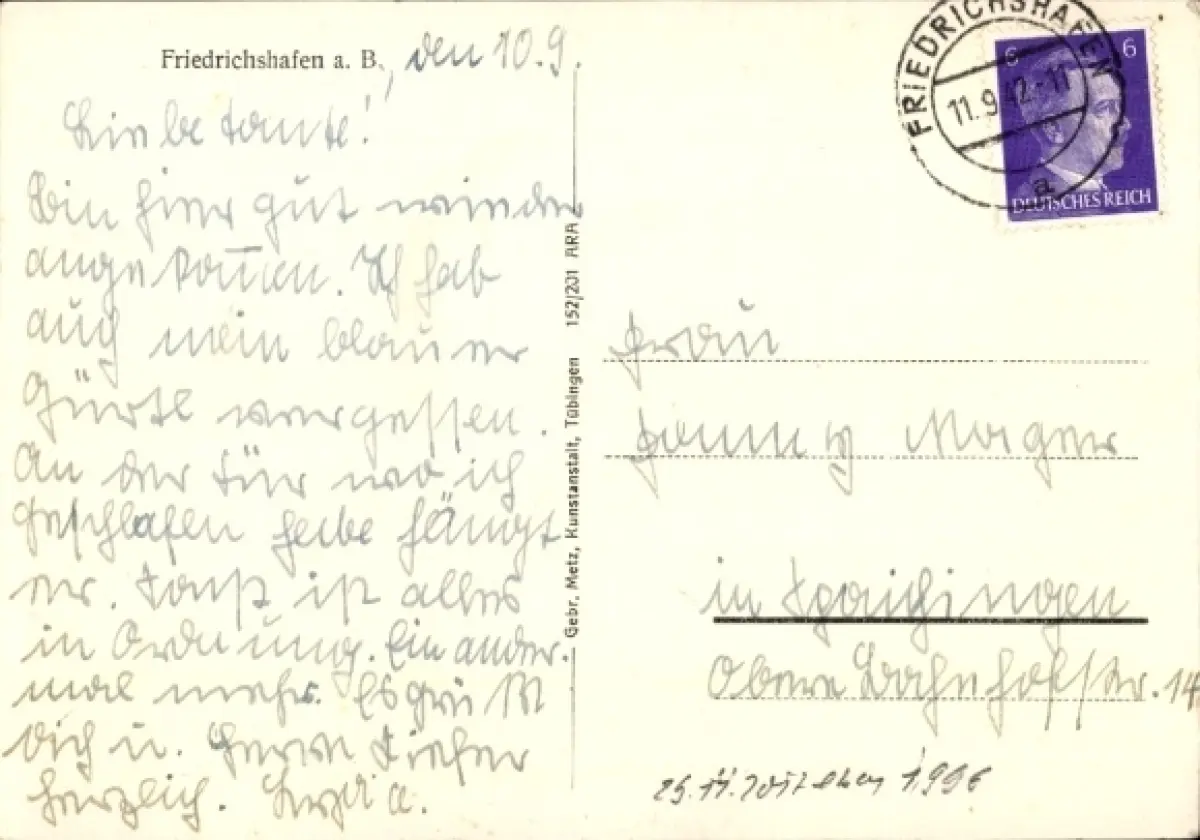 Friedrichshafen a. B., den 10.9.
Liebe Tante!
Bin hier gut wieder
angekommen. Ich hab
auch mein blauer
Gürtl vergessen.
An der Tür wo ich
geschlafen habe hängt
er. Sonst ist alles
in Ordnung. Ein ander-
mal mehr. Es grüßt
Dich u. Herrn
herzlich.
Gebr. Metz, Kunstanstalt, Tübingen 152/201 ARA
FRIEDRICHSHAFEN
11.9.42-11
a
6 6
DEUTSCHES REICH
Frau
Fanny Mager
in Spaichingen
Obere Bahnhofstr. 14
25.11. 1996